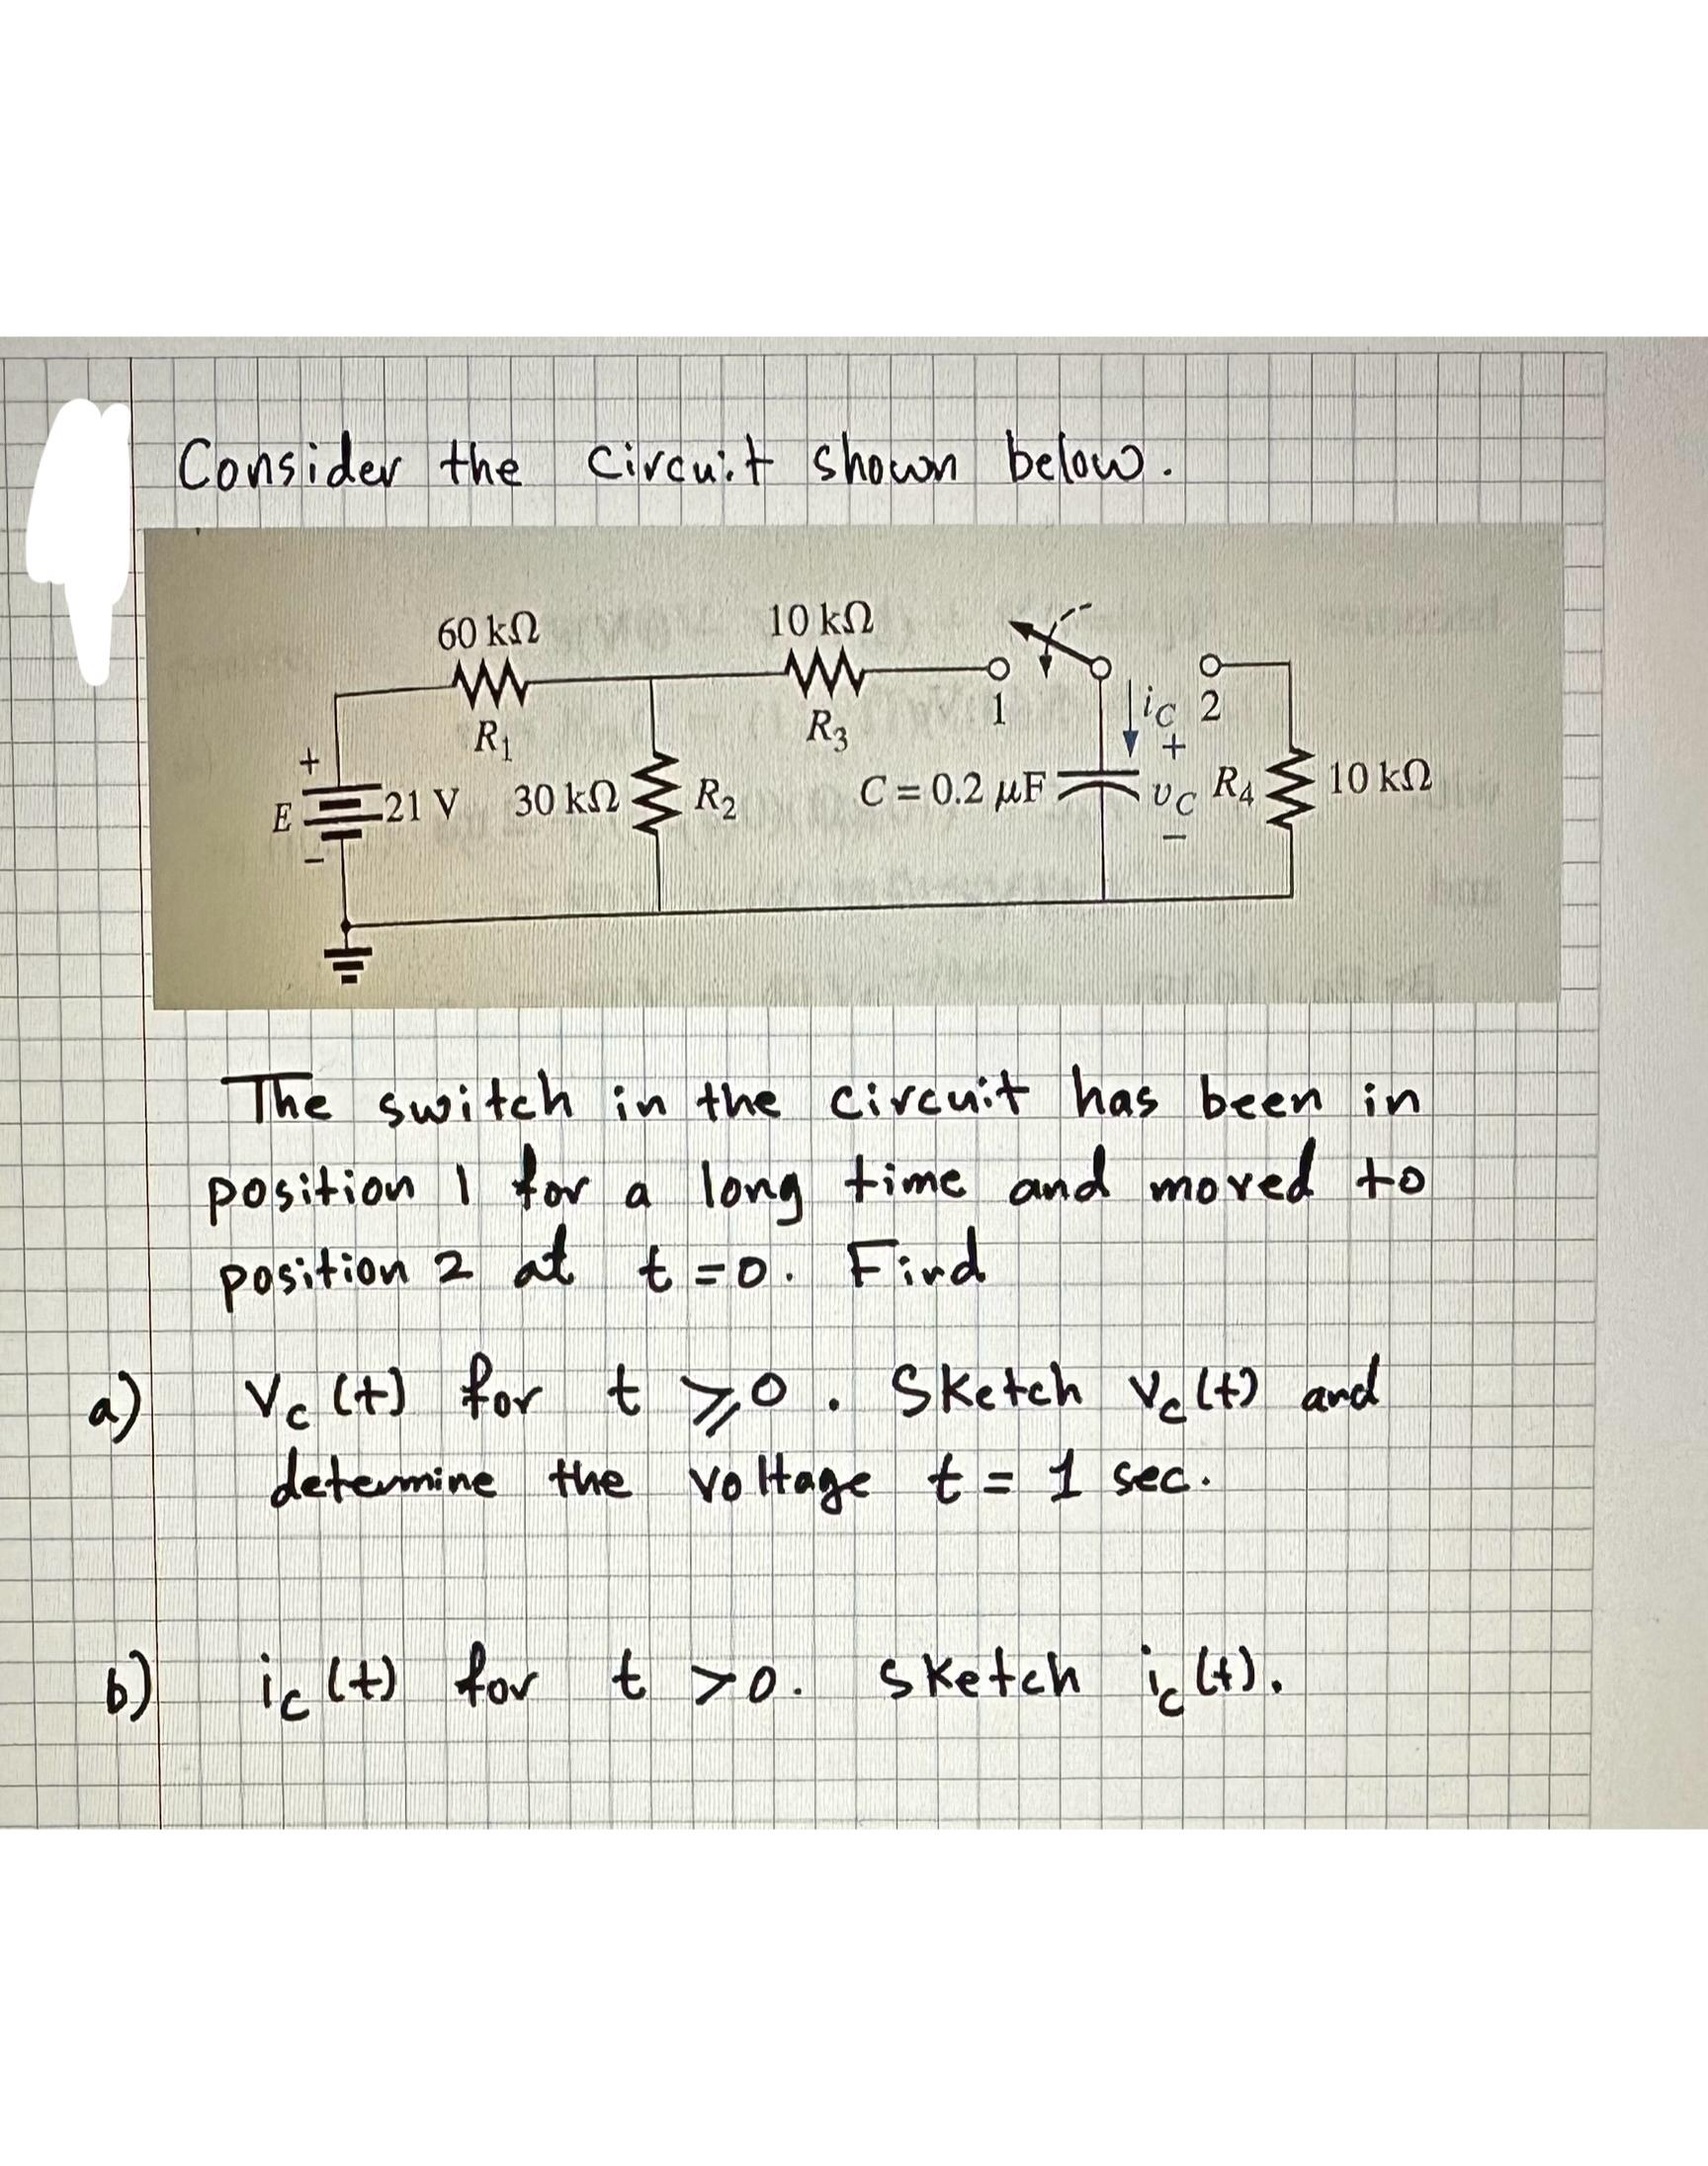 Consider the circuit shown below.
60 kΩ 10 kΩ
R1 R3 1 iC 2
+ +
E 21 V 30 kΩ R2 C = 0.2 μF υC R4 10 kΩ
− −
The switch in the circuit has been in
position 1 for a long time and moved to
position 2 at t = 0. Find
a) Vc (t) for t ⩾ 0. Sketch Vc(t) and
determine the voltage t = 1 sec.
b) ic (t) for t > 0. sketch ic(t).